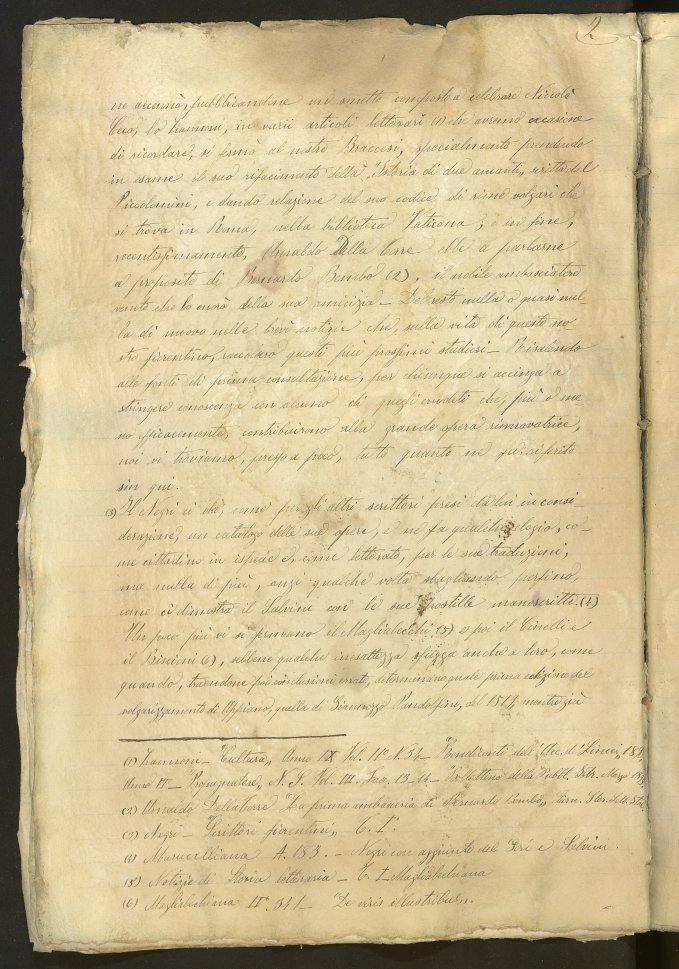 2
ne accennò, pubblicandone un sonetto composto a celebrare Niccolò
Cieco, lo Zannoni, in varii articoli letterari (1) che avremo occasione
di ricordare, si fermò al nostro Braccesi, specialmente prendendo
in esame il suo rifacimento della "Istoria di due amanti", scritta del
Piccolomini, e dando relazione del suo codice di rime volgari che
si trova in Roma, nella biblioteca Vaticana; e in fine,
recentissimamente, Arnaldo Della Torre ebbe a parlarne
a proposito di Bernardo Bembo (2), il nobile ambasciatore
veneto che lo onorò della sua amicizia — Del resto nulla o quasi nul
la di nuovo nelle brevi notizie che, sulla vita di questo no
stro fiorentino, raccolsero questi più prossimi studiosi — Risalendo
alle fonti di prima consultazione, per chiunque si accinga a
stringere conoscenza con alcuno di quegli eruditi che, più o me-
no efficacemente, contribuirono alla grande opera rinnovatrice,
noi vi troviamo, presso a poco, tutto quanto ne fu riferito
sin qui.
(3) Il Negri ci dà, come per gli altri scrittori presi da lui in consi-
derazione, un catalogo delle sue opere, e ne fa qualche elogio, co-
me cittadino in ispecie e, come letterato, per le sue traduzioni,
ma nulla di più, anzi qualche volta sbagliando perfino,
come ci dimostra il Salvini con le sue postille manoscritte. (4)
Un poco più vi si fermano il Magliabechi (5) e poi il Cinelli e
il Biscioni (6), sebbene qualche inesattezza sfugga anche a loro, come
quando, traendone poi conclusioni errate, determinano quale prima edizione del
volgarizzamento di Appiano, quella di Giannozzo Pandolfini, del 1514, mentre già
(1) Zannoni — "Cultura", Anno IX Vol. 11° N. 34 — "Rendiconti dell'Acc. dei Lincei,
Anno VI — "Propugnatore, N. S. Vol. III. Fasc. 13-14 — Bollettino della Pubbl. Letr. Marzo
(2) Arnaldo Dellatorre "La prima ambasceria di Bernardo Bembo", Giorn. Stor. Lett. Ital.
(3) Negri — "Scrittori fiorentini", T. I°
(4) Marucelliana A. 183. — Negri con aggiunte del Gori e Salvini.
(5) Notizie di Storia letteraria — T. I — Magliabechiana
(6) Magliabechiana IX. 341 — "De viris illustribus".